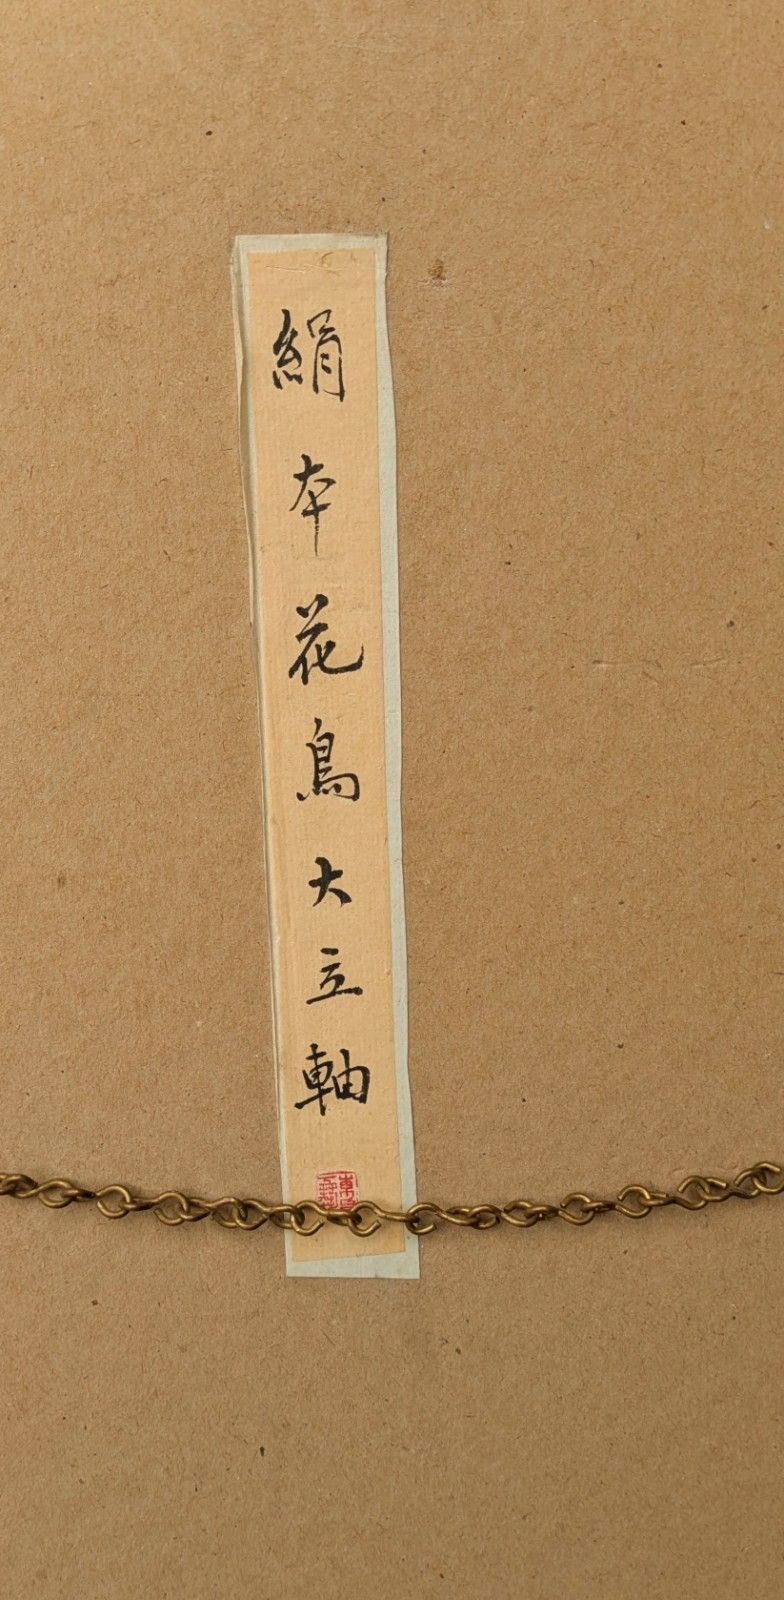 絹本花鳥大立軸